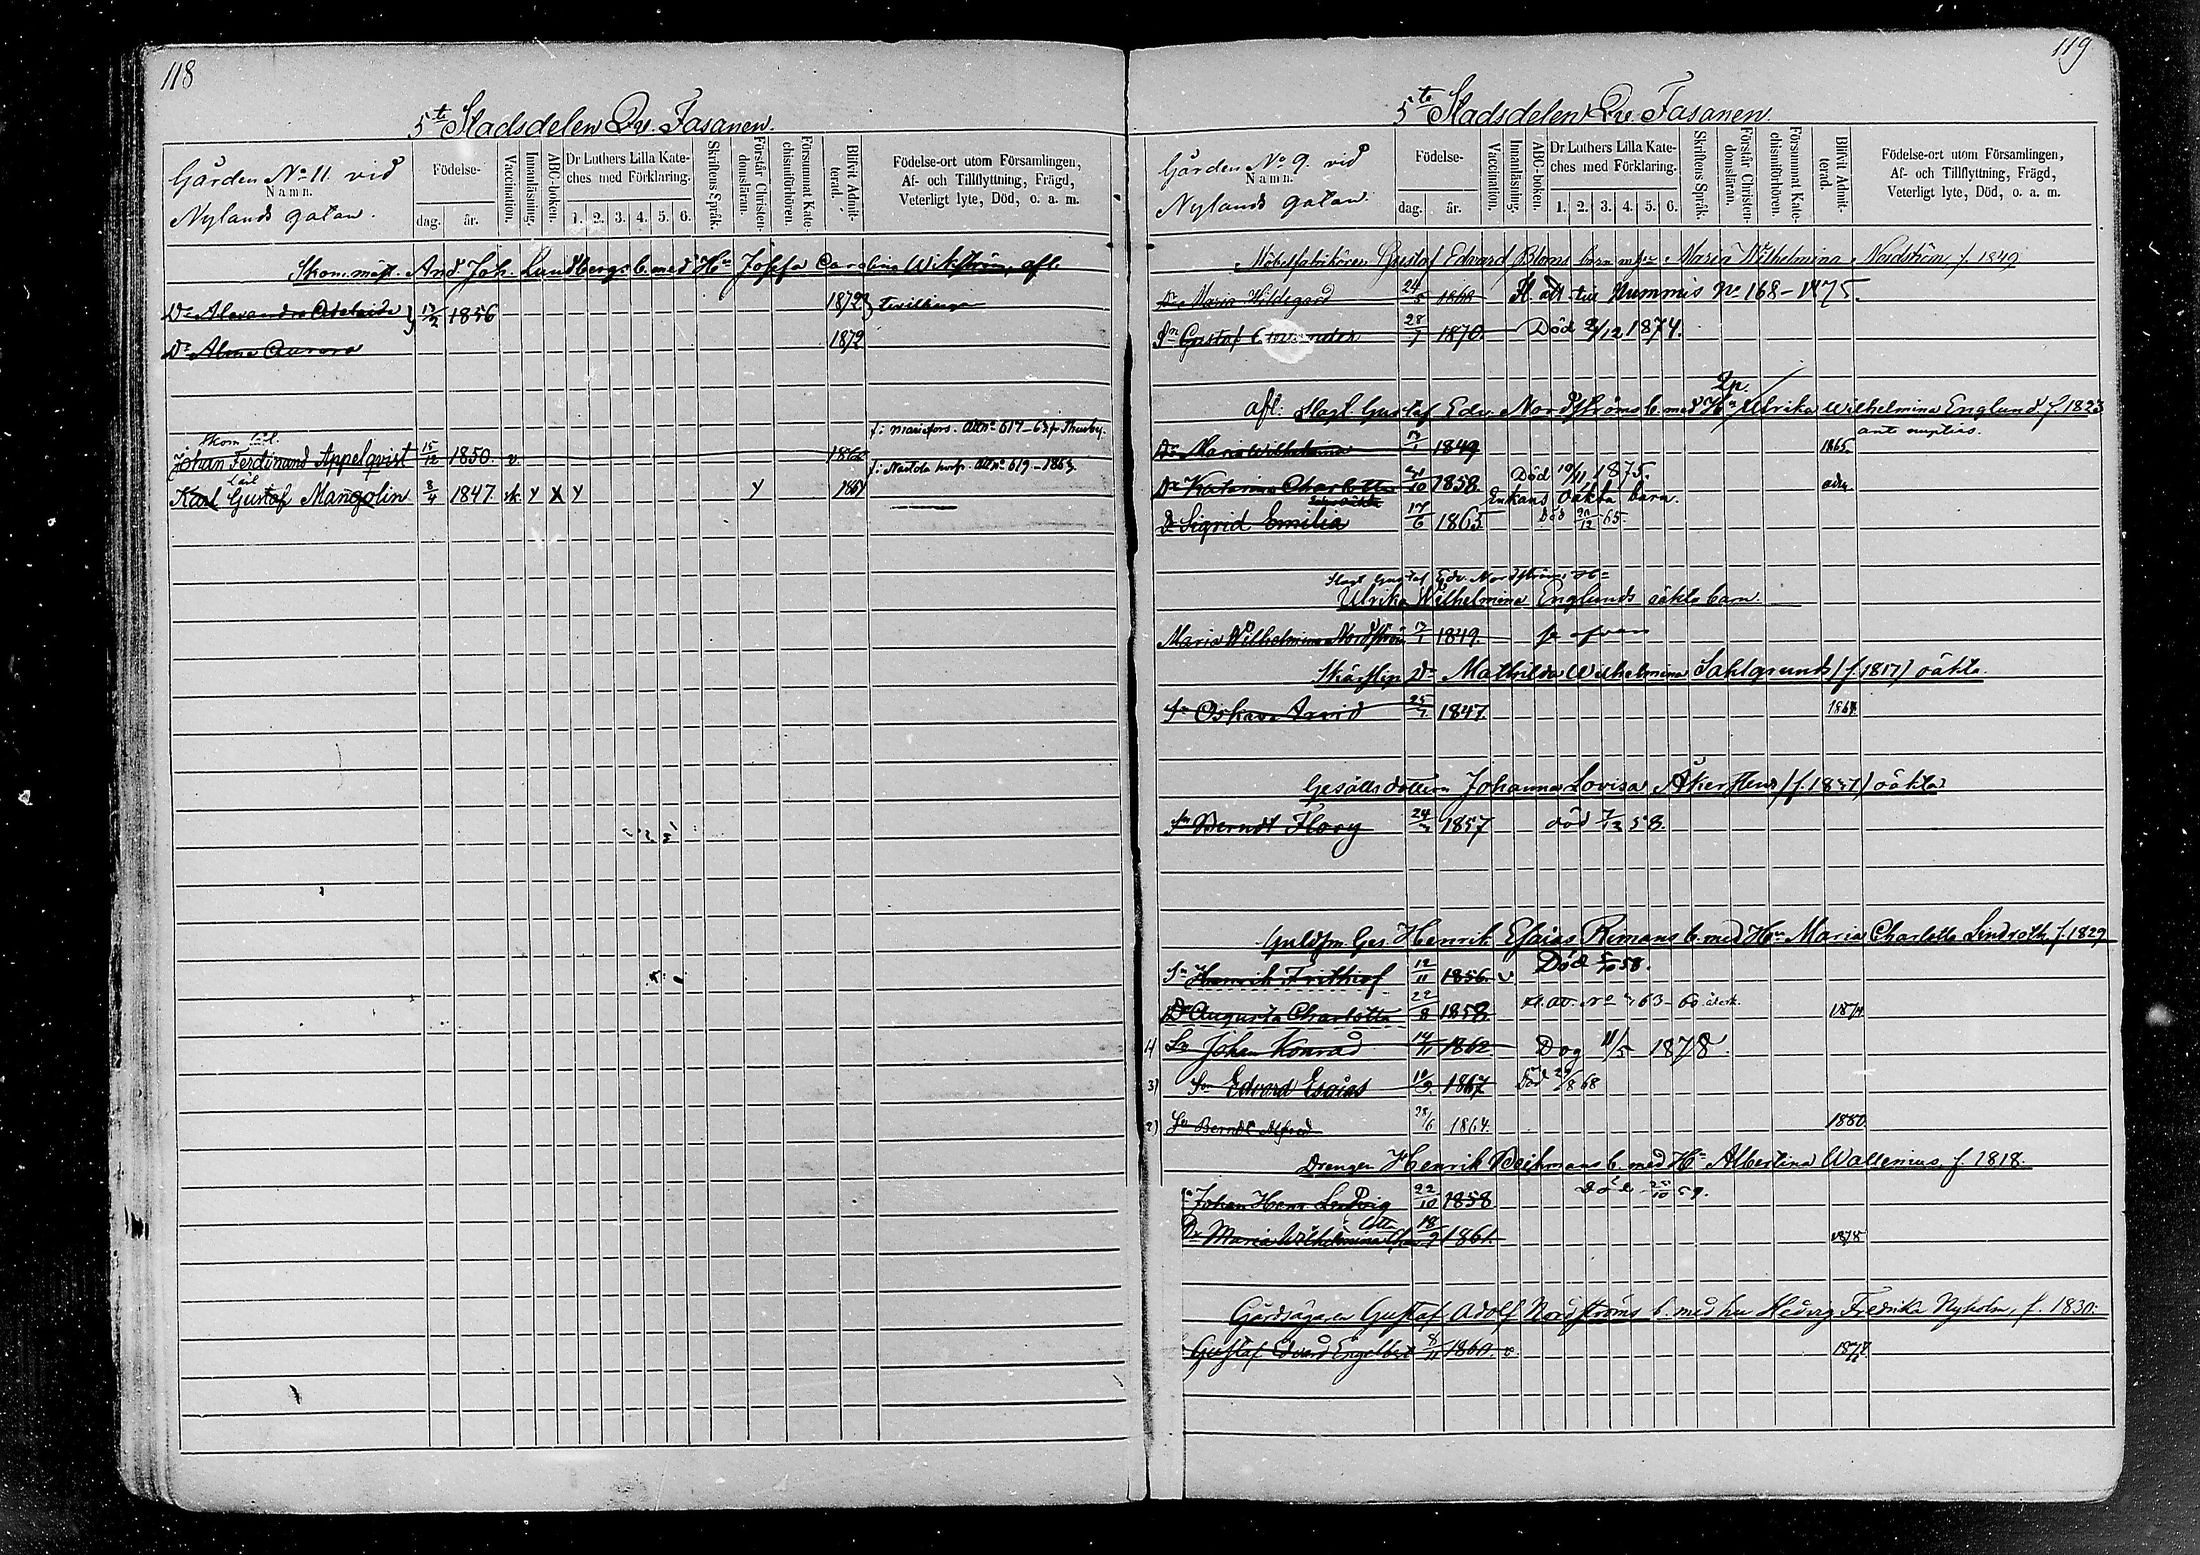 118
5te Stadsdelen Qv. Fasanen.
Gården No 11 vid
Namn.
Nylands gatan.
Födelse-
dag. år.
Vaccination.
Innanläsning.
ABC-boken.
Dr Luthers Lilla Kate-
ches med Förklaring.
1. 2. 3. 4. 5. 6.
Skriftens Språk.
Förstår Christen-
domsläran.
Försummat Kate-
chismiförhören.
Blifvit Admit-
terad.
Födelse-ort utom Församlingen,
Af- och Tillflyttning, Frägd,
Veterligt lyte, Död, o. a. m.
And. Joh. Lundbergs b. med Hu Josefa Carolina Wikström, afl.
Dr Alexandra Adelaide 1856 1872 tvillingar
Dr Alma Aurora 1872
Johan Ferdinand Appelqvist 15/12 1850. v.
Karl Gustaf Mangolin 8/4 1847. Y X Y Y
119
5te Stadsdelen Qv. Fasanen.
Gården No 9. vid
Namn.
Nylands gatan
Födelse-
dag. år.
Vaccination.
Innanläsning.
ABC-boken.
Dr Luthers Lilla Kate-
ches med Förklaring.
1. 2. 3. 4. 5. 6.
Skriftens Språk.
Förstår Christen-
domsläran.
Försummat Kate-
chismiförhören.
Blifvit Admit-
terad.
Födelse-ort utom Församlingen,
Af- och Tillflyttning, Frägd,
Veterligt lyte, Död, o. a. m.
Möbelfabrikören Gustaf Edvard Bloms barn m. Maria Wilhelmina Nordström, f. 1849
Dr Maria Hildegard 24/5 Fl. att. till Nummis No 168-1875.
Sn Gustaf 1870 Död 2/12 1874.
afl. Gustaf Edv. Nordströms b. med Hu Ulrika Wilhelmina Englund f. 1823
ant nuptias.
Dr Maria Wilhelmina 1849 1865.
Dr Katarina Charlotta 1858. Död 10/11 1875.
Enkans oäkta barn.
Dr Sigrid Emilia 17/6 1865 Död 20/12 65.
Gustaf Edv. Nordströms Hu
Ulrika Wilhelmina Englunds oäkta barn
Maria Wilhelmina Nordström 1849
Mathilda Wilhelmina Sahlgrunds (f. 1817) oäkta.
Sn Oskar Arvid 1847.
Gesälls dottern Johanna Lovisa Åkerstens oäkta
Sn Berndt Flory 1857 död 7/12 58.
Guldsm. Ges. Henrik Esaias Remans b. med Hu Maria Charlotta Lindroth, f. 1829
Sn Henrik Frithiof 12/11 1856. v Död 58.
Dr Augusta Charlotta 22/8 1858. 1874
4) Sn Johan Konrad 1862 Dog 11/5 1878.
3) Sn Edvard Esaias 10/9 1867 Död 8 68
2) Sn Berndt Alfred 28/6 1864. 1880
Drengen Henrik Beckmans b. med Hu Albertina Wallenius. f. 1818.
Johan Henr. Ludvig 22/10 1858
Dr Maria Wilhelmina 18/9 1861.
Gårdsägaren Gustaf Adolf Nordströms b. med hu Hedvig Fredrika Nyholm, f. 1830.
Gustaf Edvard Engelbert 8/11 1860. v